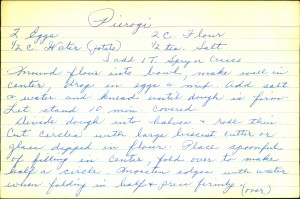 Pierogi
2 Eggs 2 C. Flour
1/2 C. Water (potato) 1/2 tea. Salt
I add 1 T. Spry or Crisco
Mound flour into bowl, make well in
center, drop in eggs & mix. Add salt
& water and knead until dough is firm
Let stand 10 min. covered.
Devide dough into halves & roll thin
Cut circles with large biscuit cutter or
glass dipped in flour. Place spoonful
of filling in center, fold over to make
half a circle. Moisten edges with water
when folding in half & press firmly (over)